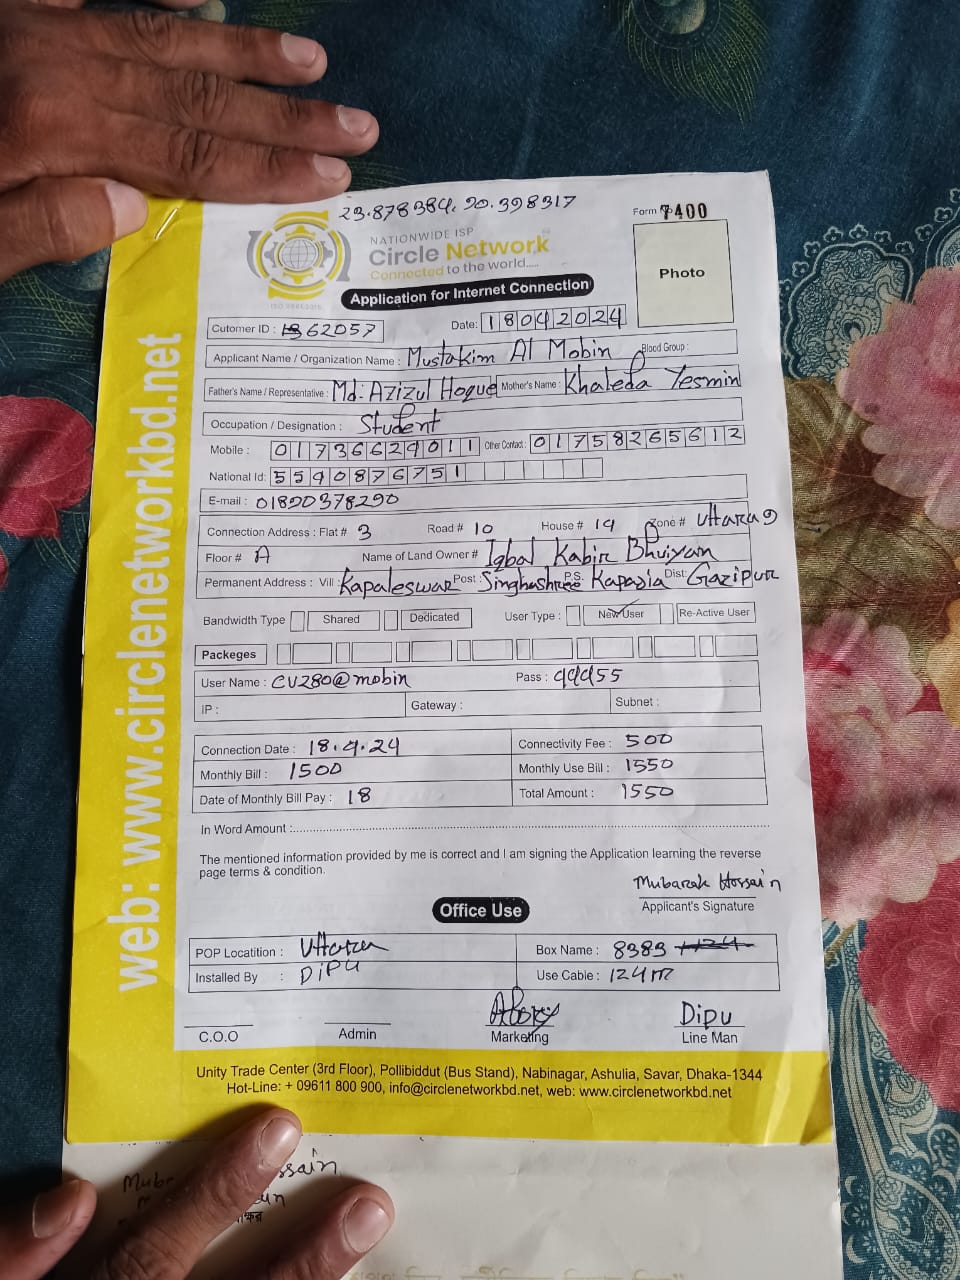 23.878384, 90.398317
Form 7400
NATIONWIDE ISP
Circle Network
Connected to the world.....
Photo
Application for Internet Connection
Cutomer ID : 62057
Date: 18042024
Applicant Name / Organization Name : Mustakim Al Mobin Blood Group :
Father's Name / Representative : Md. Azizul Hoque Mother's Name : Khaleda Yesmin
Occupation / Designation : Student
Mobile : 01736629011 Other Contact : 01758265612
National Id: 5540876751
E-mail : 01890378290
Connection Address : Flat # 3 Road # 10 House # 14 Zone # Uttara 9
Floor # A Name of Land Owner # Iqbal Kabir Bhuiyan
Permanent Address : Vill : Kapaleswar Post : Singhashree P.S: Kapasia Dist: Gazipur
Bandwidth Type Shared Dedicated User Type : New User Re-Active User
Packeges
User Name : CV280@mobin Pass : 99955
IP : Gateway : Subnet :
Connection Date : 18.4.24 Connectivity Fee : 500
Monthly Bill : 1500 Monthly Use Bill : 1550
Date of Monthly Bill Pay : 18 Total Amount : 1550
In Word Amount :
The mentioned information provided by me is correct and I am signing the Application learning the reverse
page terms & condition.
Mubarak Hossain
Applicant's Signature
Office Use
POP Locatition : Uttara Box Name : 8383
Installed By : DiPu Use Cabie : 124m
Dipu
C.O.O Admin Marketing Line Man
Unity Trade Center (3rd Floor), Pollibiddut (Bus Stand), Nabinagar, Ashulia, Savar, Dhaka-1344
Hot-Line: + 09611 800 900, info@circlenetworkbd.net, web: www.circlenetworkbd.net
web: www.circlenetworkbd.net